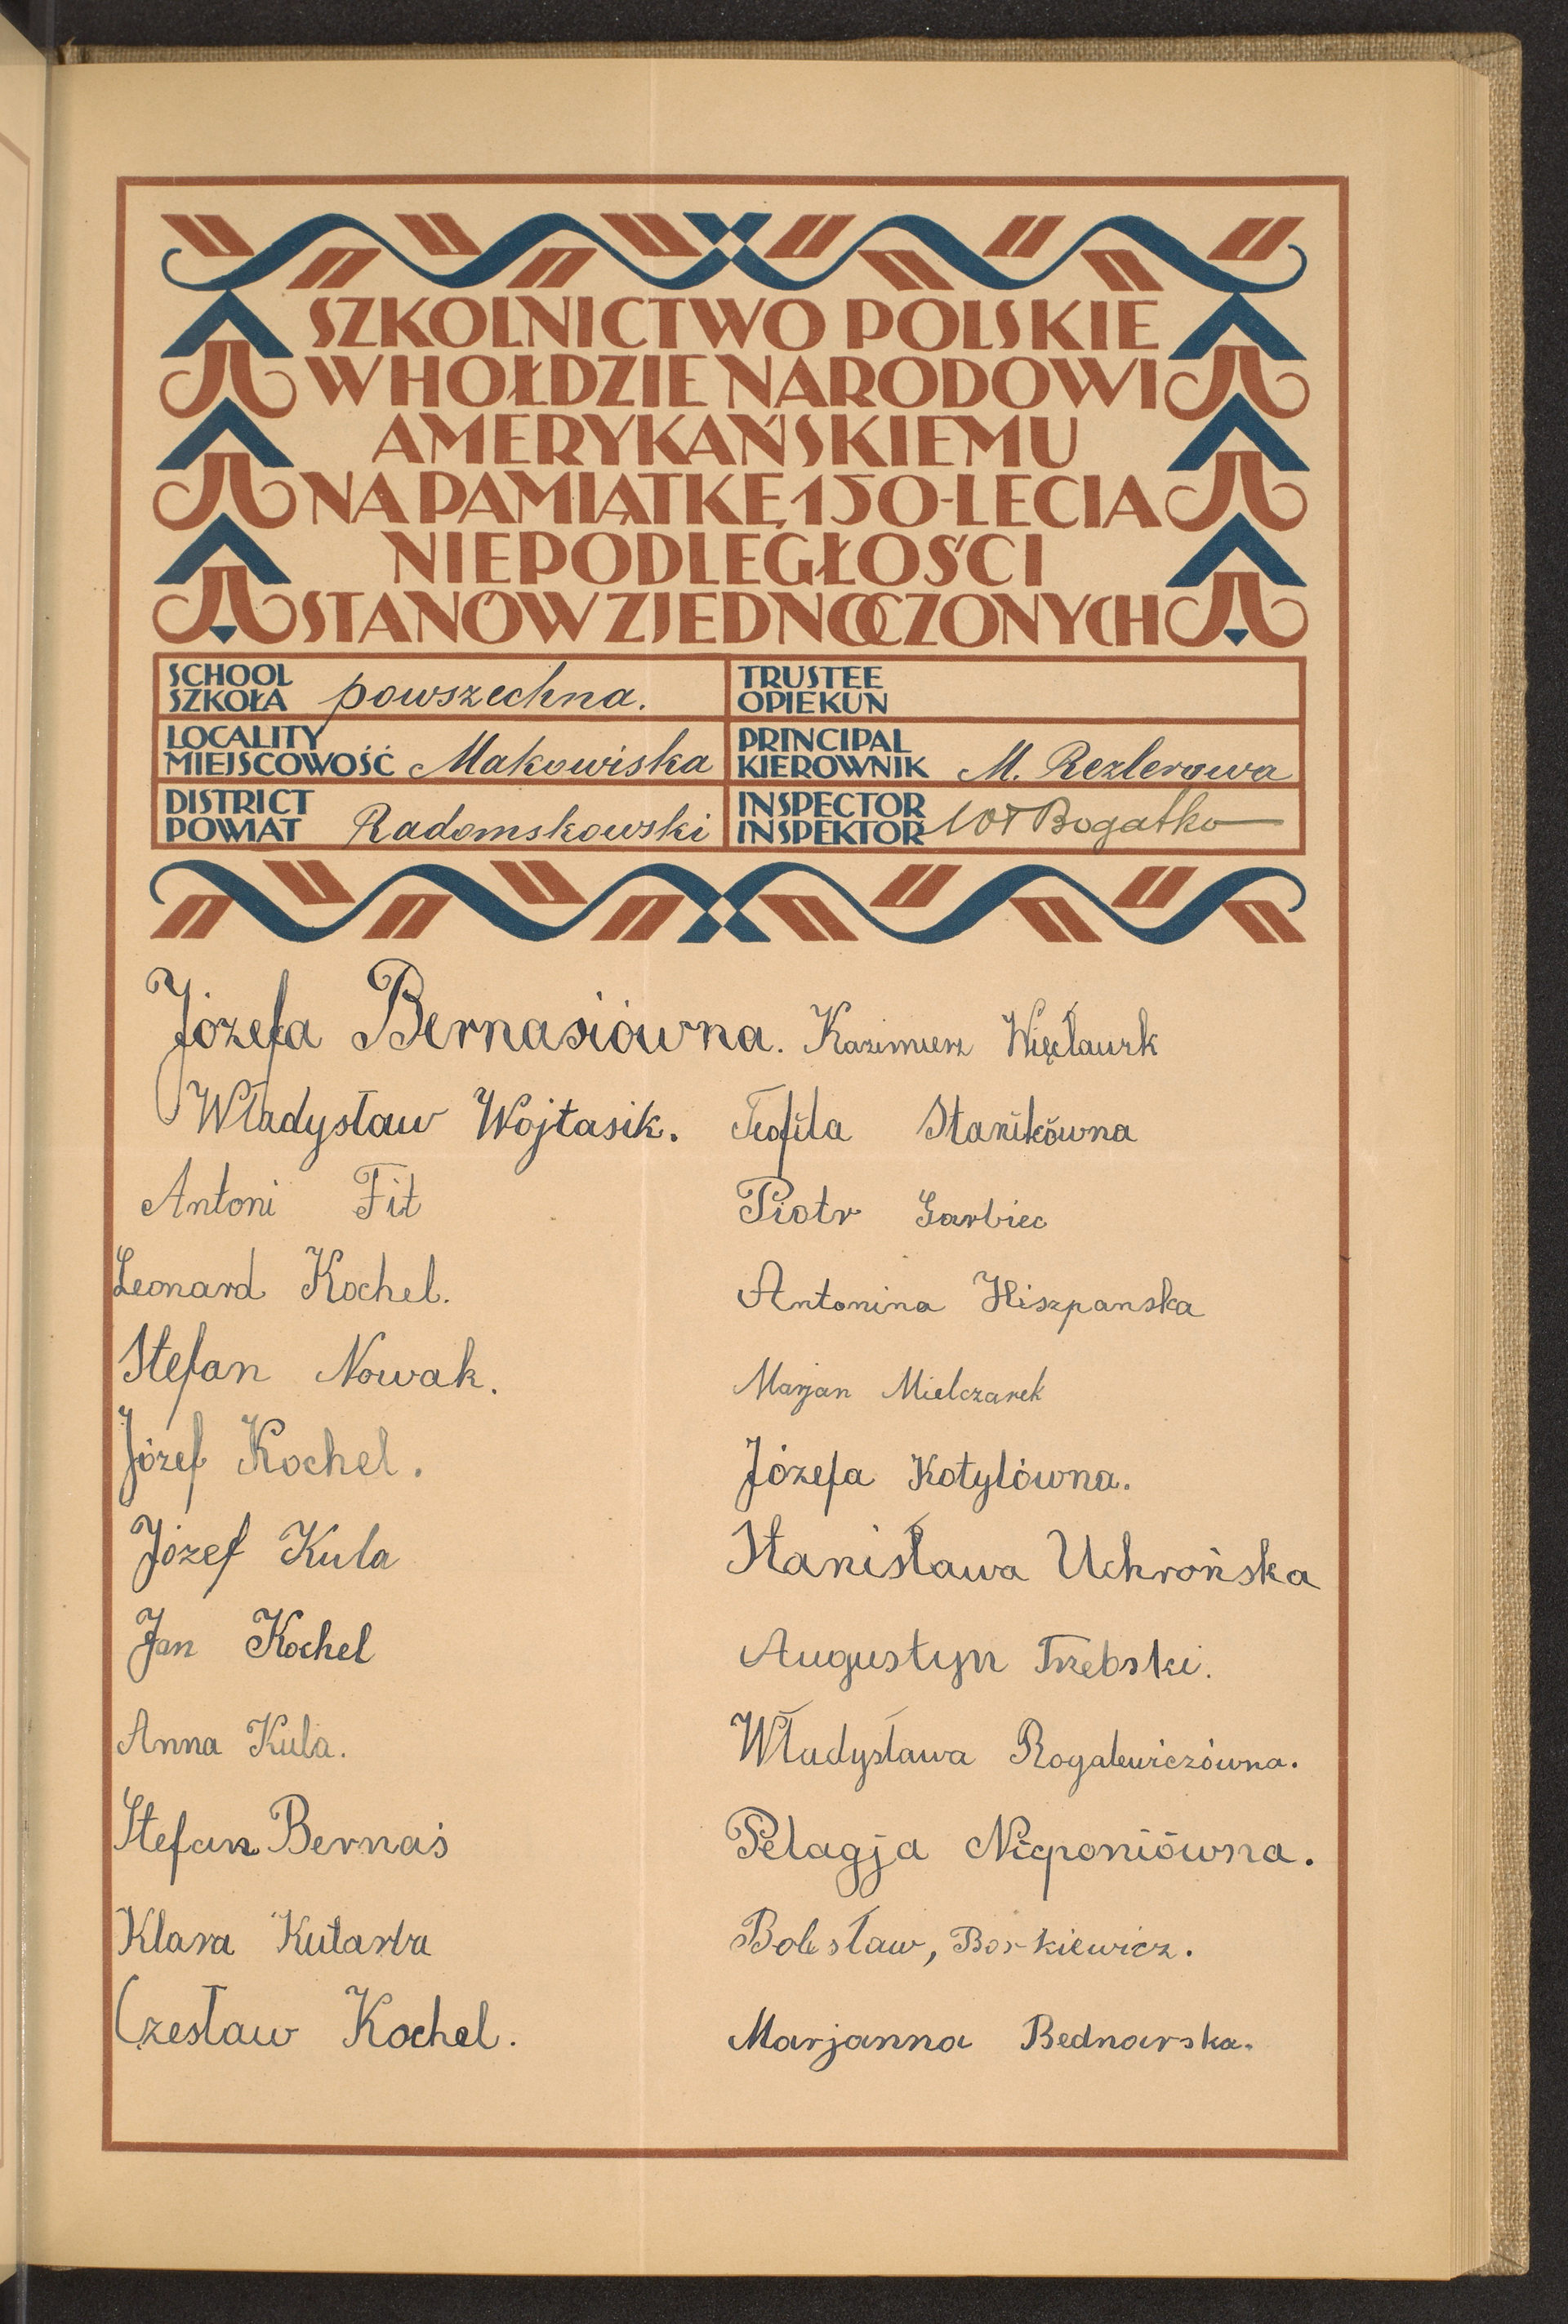 SZKOLNICTWO POLSKIE
W HOŁDZIE NARODOWI
AMERYKAŃSKIEMU
NA PAMIĄTKĘ 150-LECIA
NIEPODLEGŁOŚCI
STANÓW ZJEDNOCZONYCH
SCHOOL
SZKOŁA powszechna.
TRUSTEE
OPIEKUN
LOCALITY
MIEJSCOWOŚĆ Makowiska
PRINCIPAL
KIEROWNIK M. Rezlerowa
DISTRICT
POWIAT Radomskowski
INSPECTOR
INSPEKTOR Bogatko
Józefa Bernasiówna. Kazimierz
Władysław Wojtasik. Teofila Stanikówna
Antoni Fit Piotr Garbiec
Leonard Kochel. Antonina Hiszpanska
Stefan Nowak. Marjan Mielczarek
Józef Kochel. Józefa Kotylówna.
Józef Kula Stanisława Uchrońska
Jan Kochel Augustyn Trzebski.
Anna Kula. Władysława Rogalewiczówna.
Stefan Bernaś Pelagja
Klara Bolesław, Borkiewicz.
Czesław Kochel. Marjanna Bednarska.